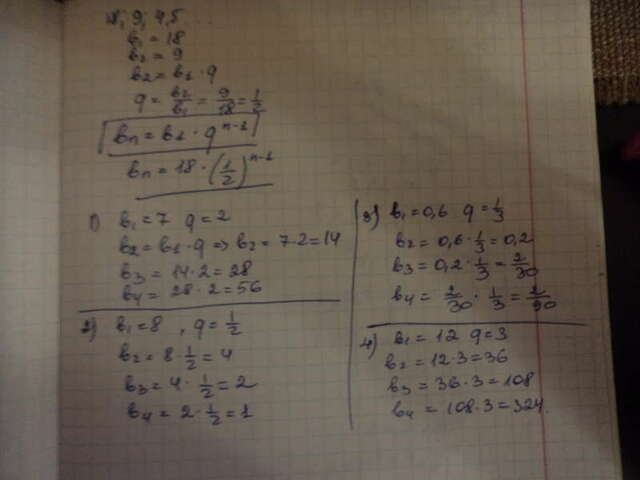 18; 9; 4,5
b₁ = 18
b₂ = 9
b₂ = b₁ · q
q = b₂/b₁ = 9/18 = 1/2
bₙ = b₁ · qⁿ⁻¹
bₙ = 18 · (1/2)ⁿ⁻¹
1) b₁ = 7 q = 2
b₂ = b₁ · q ⇒ b₂ = 7·2 = 14
b₃ = 14·2 = 28
b₄ = 28·2 = 56
2) b₁ = 8, q = 1/2
b₂ = 8·1/2 = 4
b₃ = 4·1/2 = 2
b₄ = 2·1/2 = 1
3) b₁ = 0,6 q = 1/3
b₂ = 0,6·1/3 = 0,2
b₃ = 0,2·1/3 = 2/30
b₄ = 2/30·1/3 = 2/90
4) b₁ = 12 q = 3
b₂ = 12·3 = 36
b₃ = 36·3 = 108
b₄ = 108·3 = 324.